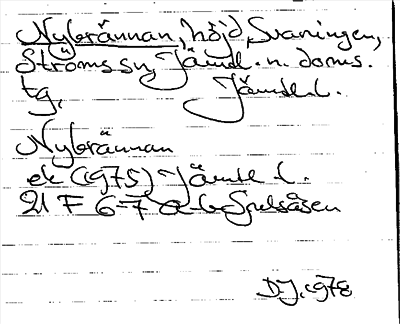 Nybrännan, höjd, Svaningen,
Ströms sn, Jämtl. n. doms.
tg, Jämtl. l.
Nybrännan
ek (1975) Jämtl l.
21 F 6-7 a-b Spelsåsen
D.J. 1978